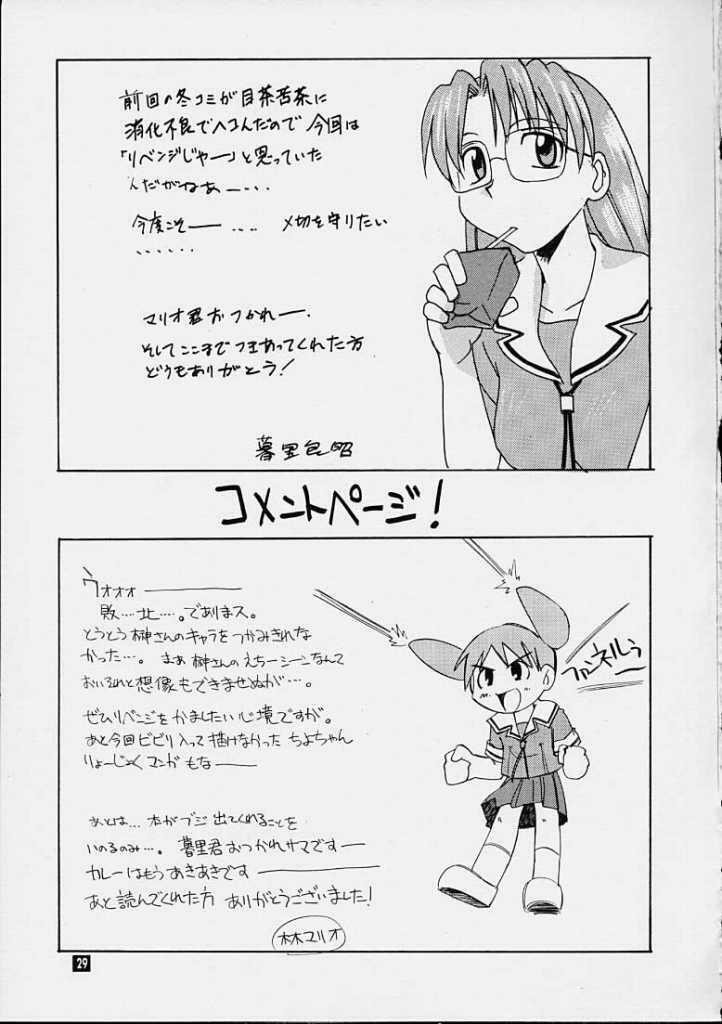 前回の冬コミが目茶苦茶に
消化不良でヘコんだので今回は
「リベンジじゃー」と思っていた
んだがねあー...
今度こそー .... 〆切を守りたい
......
マリオ君おつかれー.
そしてここまでつきあってくれた方
どうもありがとう!
暮里
コメントページ!
ウォォォ———
敗....北....。でありまス。
とうとう榊さんのキャラをつかみきれな
かった...。まぁ榊さんのえちーシーンなんて
おいそれと想像もできませぬが...。
ぜひリベンジをかましたい心境ですが。
あと今回ビビリ入って描けなかったちよちゃん
りょーじょくマンガもな——
あとは...本がブジ出てくれることを
いのるのみ...。暮里君おつかれサマです—
カレーはもうあきあきです———
あと読んでくれた方 ありがとうございました!
マリオ
ファンネルぅ
29